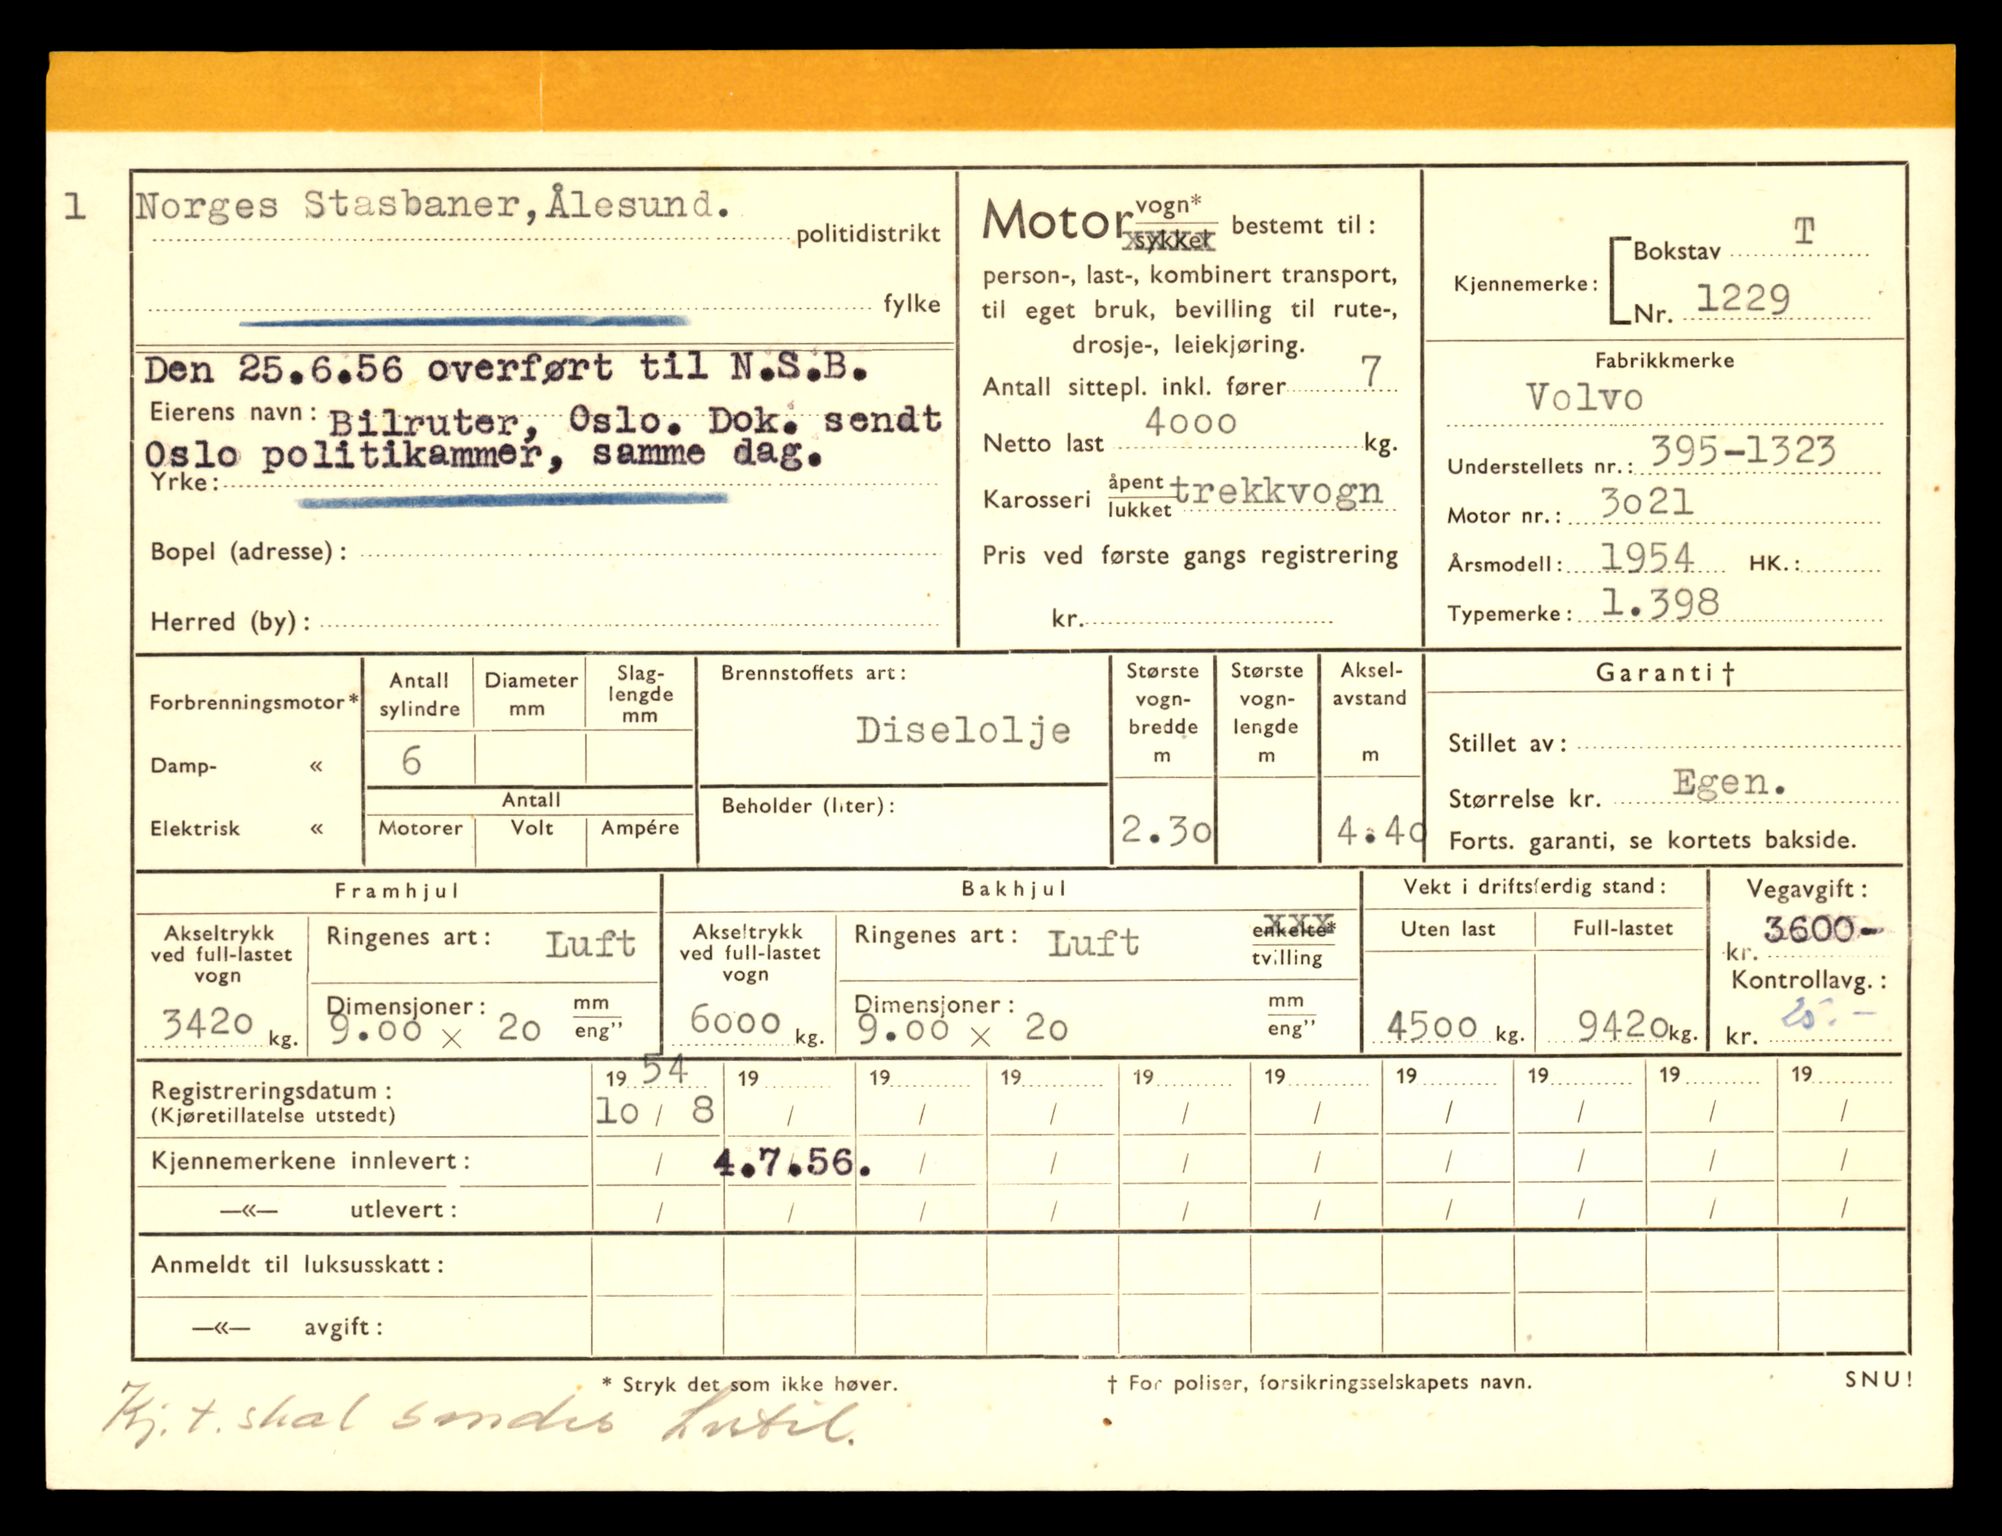 1 Norges Stasbaner, Ålesund.
politidistrikt
fylke
Den 25.6.56 overført til N.S.B.
Eierens navn: Bilruter, Oslo. Dok. sendt
Oslo politikammer, samme dag.
Yrke:
Bopel (adresse):
Herred (by):
Motor vogn* bestemt til:
sykket
person-, last-, kombinert transport,
til eget bruk, bevilling til rute-,
drosje-, leiekjøring.
Antall sittepl. inkl. fører 7
Netto last 4000 kg.
Karosseri åpent trekkvogn
lukket
Pris ved første gangs registrering
kr.
Kjennemerke: Bokstav T
Nr. 1229
Fabrikkmerke
Volvo
Understellets nr.: 395-1323
Motor nr.: 3021
Årsmodell: 1954 HK.:
Typemerke: 1.398
Forbrenningsmotor*
Damp- «
Elektrisk «
Antall sylindre
6
Diameter mm
Slag-
lengde
mm
Antall
Motorer Volt Ampére
Brennstoffets art:
Diselolje
Beholder (liter):
Største
vogn-
bredde
m
2.30
Største
vogn-
lengde
m
Aksel-
avstand
m
4.40
Garanti †
Stillet av:
Størrelse kr. Egen.
Forts. garanti, se kortets bakside.
Framhjul
Akseltrykk
ved full-lastet
vogn
3420 kg.
Ringenes art: Luft
Dimensjoner: mm
9.00 x 20 eng"
Bakhjul
Akseltrykk
ved full-lastet
vogn
6000 kg.
Ringenes art: Luft
xxx
enkelte*
tvilling
Dimensjoner: mm
9.00 x 20 eng"
Vekt i driftsferdig stand:
Uten last Full-lastet
4500 kg. 9420 kg.
Vegavgift:
kr. 3600-
Kontrollavg.:
kr. 25.-
Registreringsdatum: 19 54 19 19 19 19 19 19 19 19 19
(Kjøretillatelse utstedt) 10 / 8 / / / / / / / / /
Kjennemerkene innlevert: / 4.7.56. / / / / / / / /
—«— utlevert: / / / / / / / / / /
Anmeldt til luksusskatt:
—«— avgift:
* Stryk det som ikke høver. † For poliser, forsikringsselskapets navn. SNU!
Kj. t. skal sendes